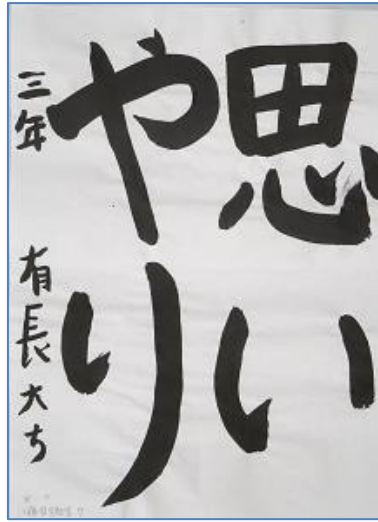 思い
やり
三年 有長大ち